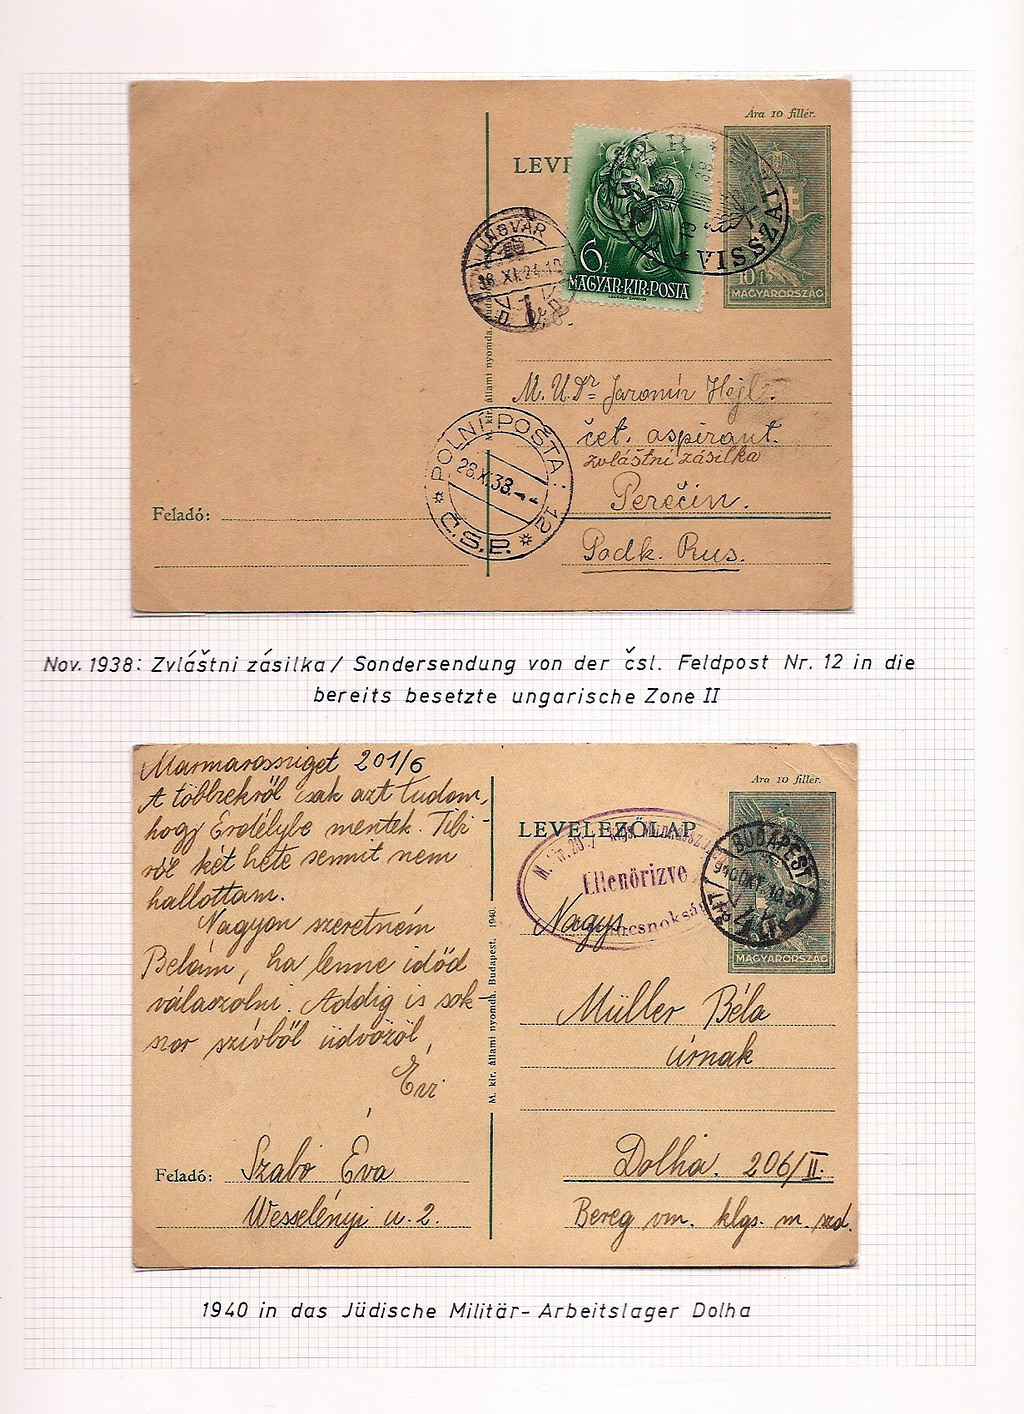 Ára 10 fillér.
LEVE
UNGVÁR
38 XI. 24. 10
6f
MAGYAR·KIR·POSTA
VISSZATÉRT
10 f
MAGYARORSZÁG
M. kir. állami nyomda.
M. U. Dr Jaromír Hejl
čet. aspirant.
zvláštní zásilka
Perečín.
Podk. Rus.
POLNÍ POŠTA 12
28.XI.38
Č.S.P.
Feladó:
Nov. 1938: Zvláštni zásilka / Sondersendung von der čsl. Feldpost Nr. 12 in die
bereits besetzte ungarische Zone II
Marmarossziget 201/6
A többiekről csak azt tudom,
hogy Erdélybe mentek. Tibi-
ről két hete semmit nem
hallottam.
Nagyon szeretném
Belám, ha lenne időd
válaszolni. Addig is sok-
szor szívből üdvözöl,
Évi
Feladó: Szabó Éva
Wesselényi u. 2.
M. kir. állami nyomda. Budapest. 1940.
Ára 10 fillér.
LEVELEZŐLAP
Ellenőrizve
BUDAPEST
940 OKT. 10. 20
MAGYARORSZÁG
Nagys.
Müller Béla
úrnak
Dolha. 206/II.
Bereg vm. klgs. m. szd.
1940 in das Jüdische Militär-Arbeitslager Dolha